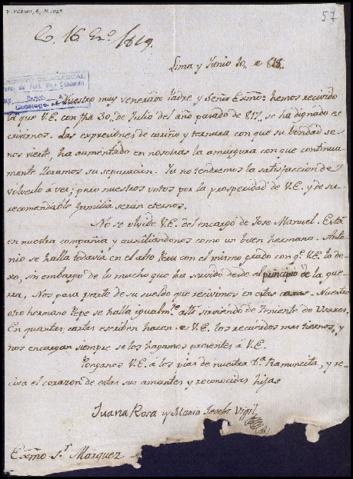 57
C. 16 En.º /819.
Lima y Junio 10, de 818.
Nuestro muy venerado Padre y Señor Exmo: hemos recivido
la que V.E. con fha 30,, de Julio del año pasado de 817,, se ha dignado es-
crivirnos. Las expresiones de cariño y ternura con que su bondad se
nos vierte, ha aumentado en nosotras la amargura con que continua-
mente lloramos su separacion. Ya no tendremos la satisfaccion de
volverlo a ver; pero nuestros votos por la prosperidad de V.E. y de su
recomendable familia serán eternos.
No se olvide V.E. del encargo de Jose Manuel. Está
en nuestra compañia y auxiliandonos como un buen hermano. Anto-
nio se halla todavia en el alto Peru con el mismo grado con q.e V.E. lo de-
xo, sin embargo de lo mucho que ha servido desde el principio de la gue-
rra. Nos pasa parte de su sueldo que recivimos en estas caxas. Nuestro
otro hermano Pepe se halla igualm.te allá sirviendo de Teniente de
En quantas cartas escriben hacen a V.E. los recuerdos mas tiernos, y
nos encargan siempre se los hagamos presentes á V.E.
Ponganos V.E. á los pies de nuestra S.ra Ramuncita, y re-
civa el corazon de estas sus amantes y reconocidas hijas
Juana Rosa y Maria Josefa Vigil.
Exmo S.r Marquez